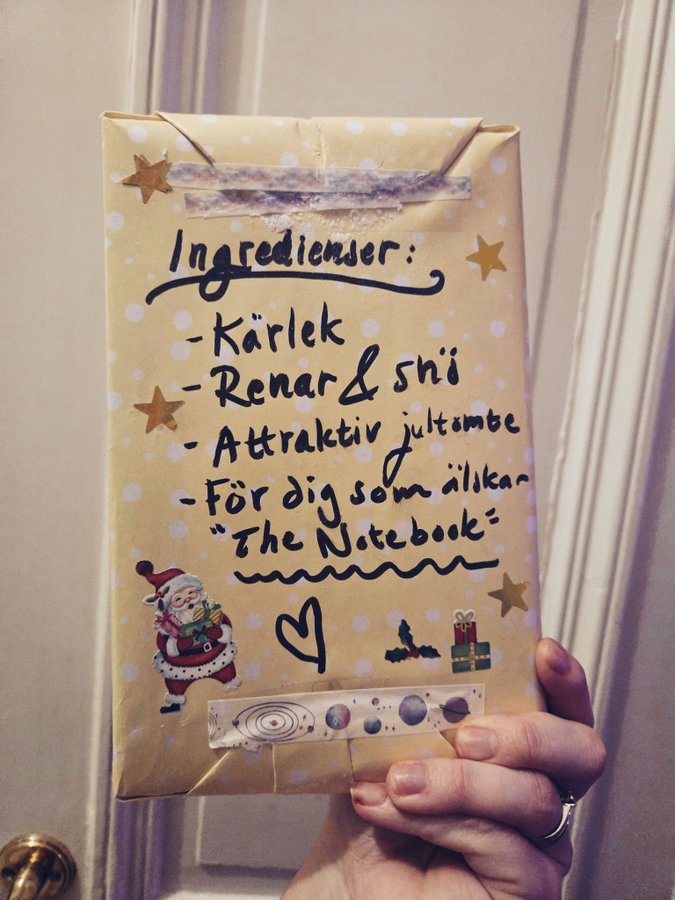 Ingredienser:
- Kärlek
- Renar & snö
- Attraktiv jultomte
- För dig som älskar
"The Notebook"